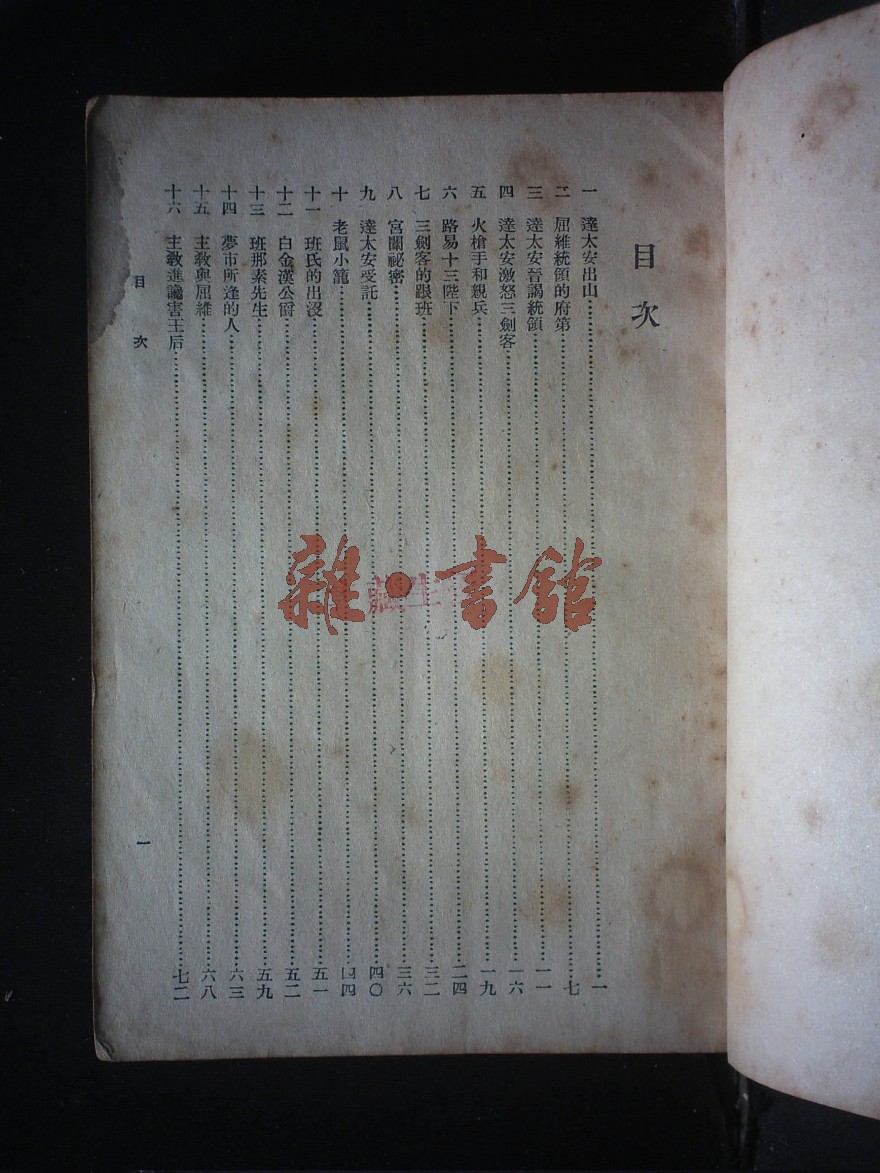 目次
一 達太安出山 一
二 屈維統領的府第 七
三 達太安晉謁統領 一一
四 達太安激怒三劍客 一六
五 火槍手和親兵 一九
六 路易十三陛下 二四
七 三劍客的跟班 三二
八 宮闈祕密 三六
九 達太安受託 四〇
十 老鼠小籠 四四
十一 班氏的出沒 五一
十二 白金漢公爵 五二
十三 班那素先生 五九
十四 夢市所逢的人 六三
十五 主教與屈維 六八
十六 主教進讒害王后 七二
目次 一
雜·書館
藏生